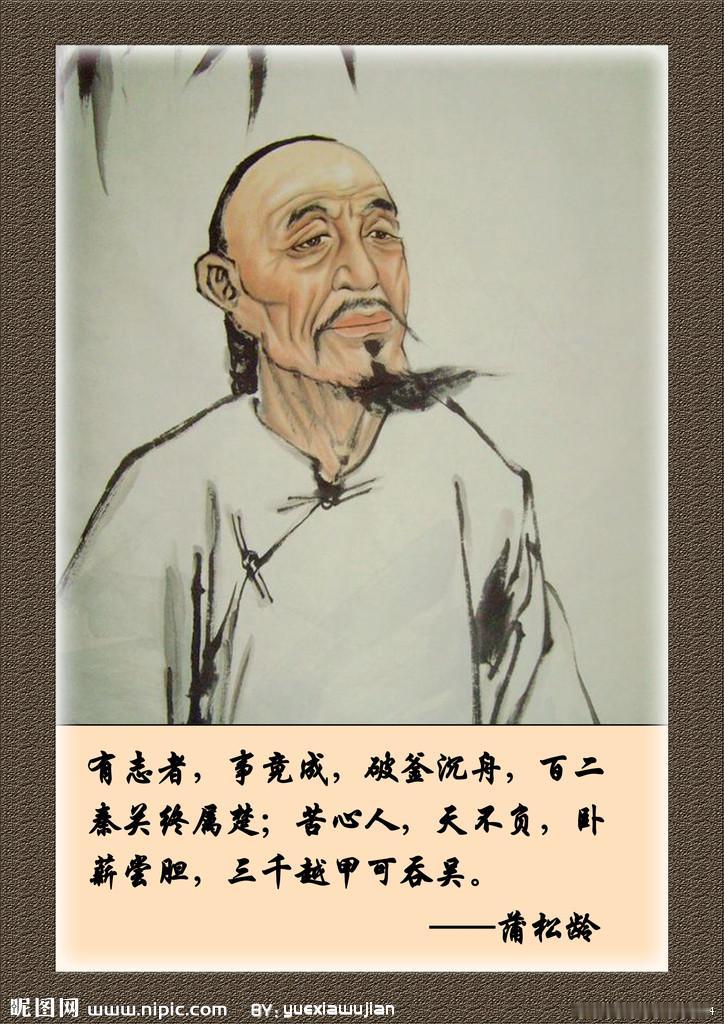 有志者，事竟成，破釜沉舟，百二
秦关终属楚；苦心人，天不负，卧
薪尝胆，三千越甲可吞吴。
——蒲松龄
昵图网 www.nipic.com BY：yuexiawujian